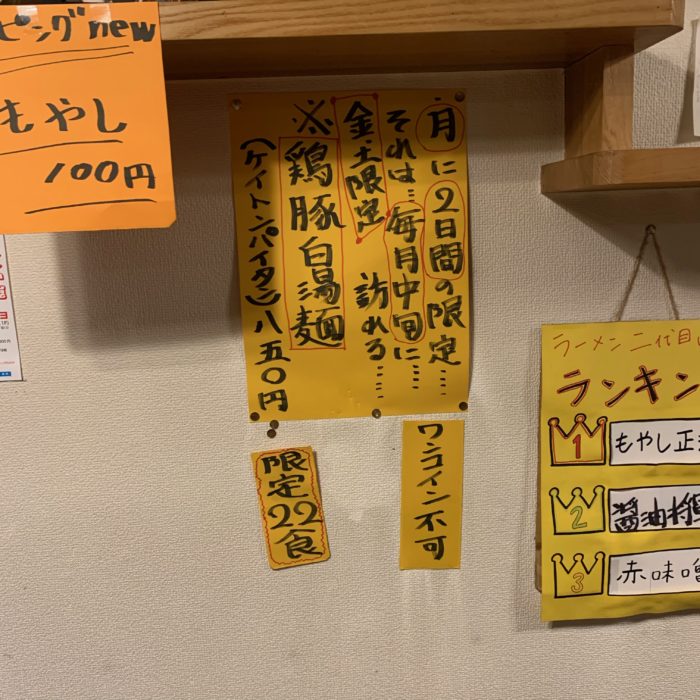 ピングnew
もやし
100円
月に2日間の限定……
それは…毎月中旬に……
金、土限定 訪れる……
※鶏豚白湯麺
(ケイトンパイタン)八五〇円
限定22食
ワンコイン不可
ラーメン二代目
ランキン
1 もやし正
2 醤油
3 赤味噌